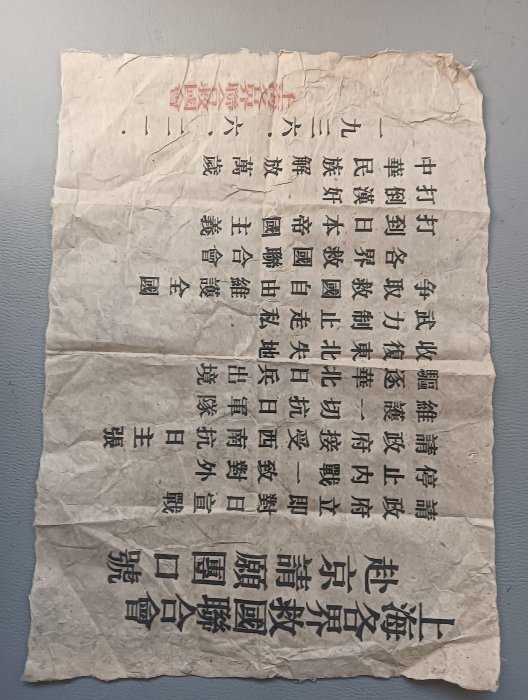 上海各界救國聯合會
赴京請願團口號
請政府立即對日宣戰
停止內戰一致對外
請政府接受西南抗日主張
維護一切抗日軍隊
驅逐華北日兵出境
收復東北失地
武力制止走私
爭取救國自由維護全國
各界救國聯合會
打到日本帝國主義
打倒漢奸
中華民族解放萬歲
一九三六.六.二一.
上海各界聯合救國會